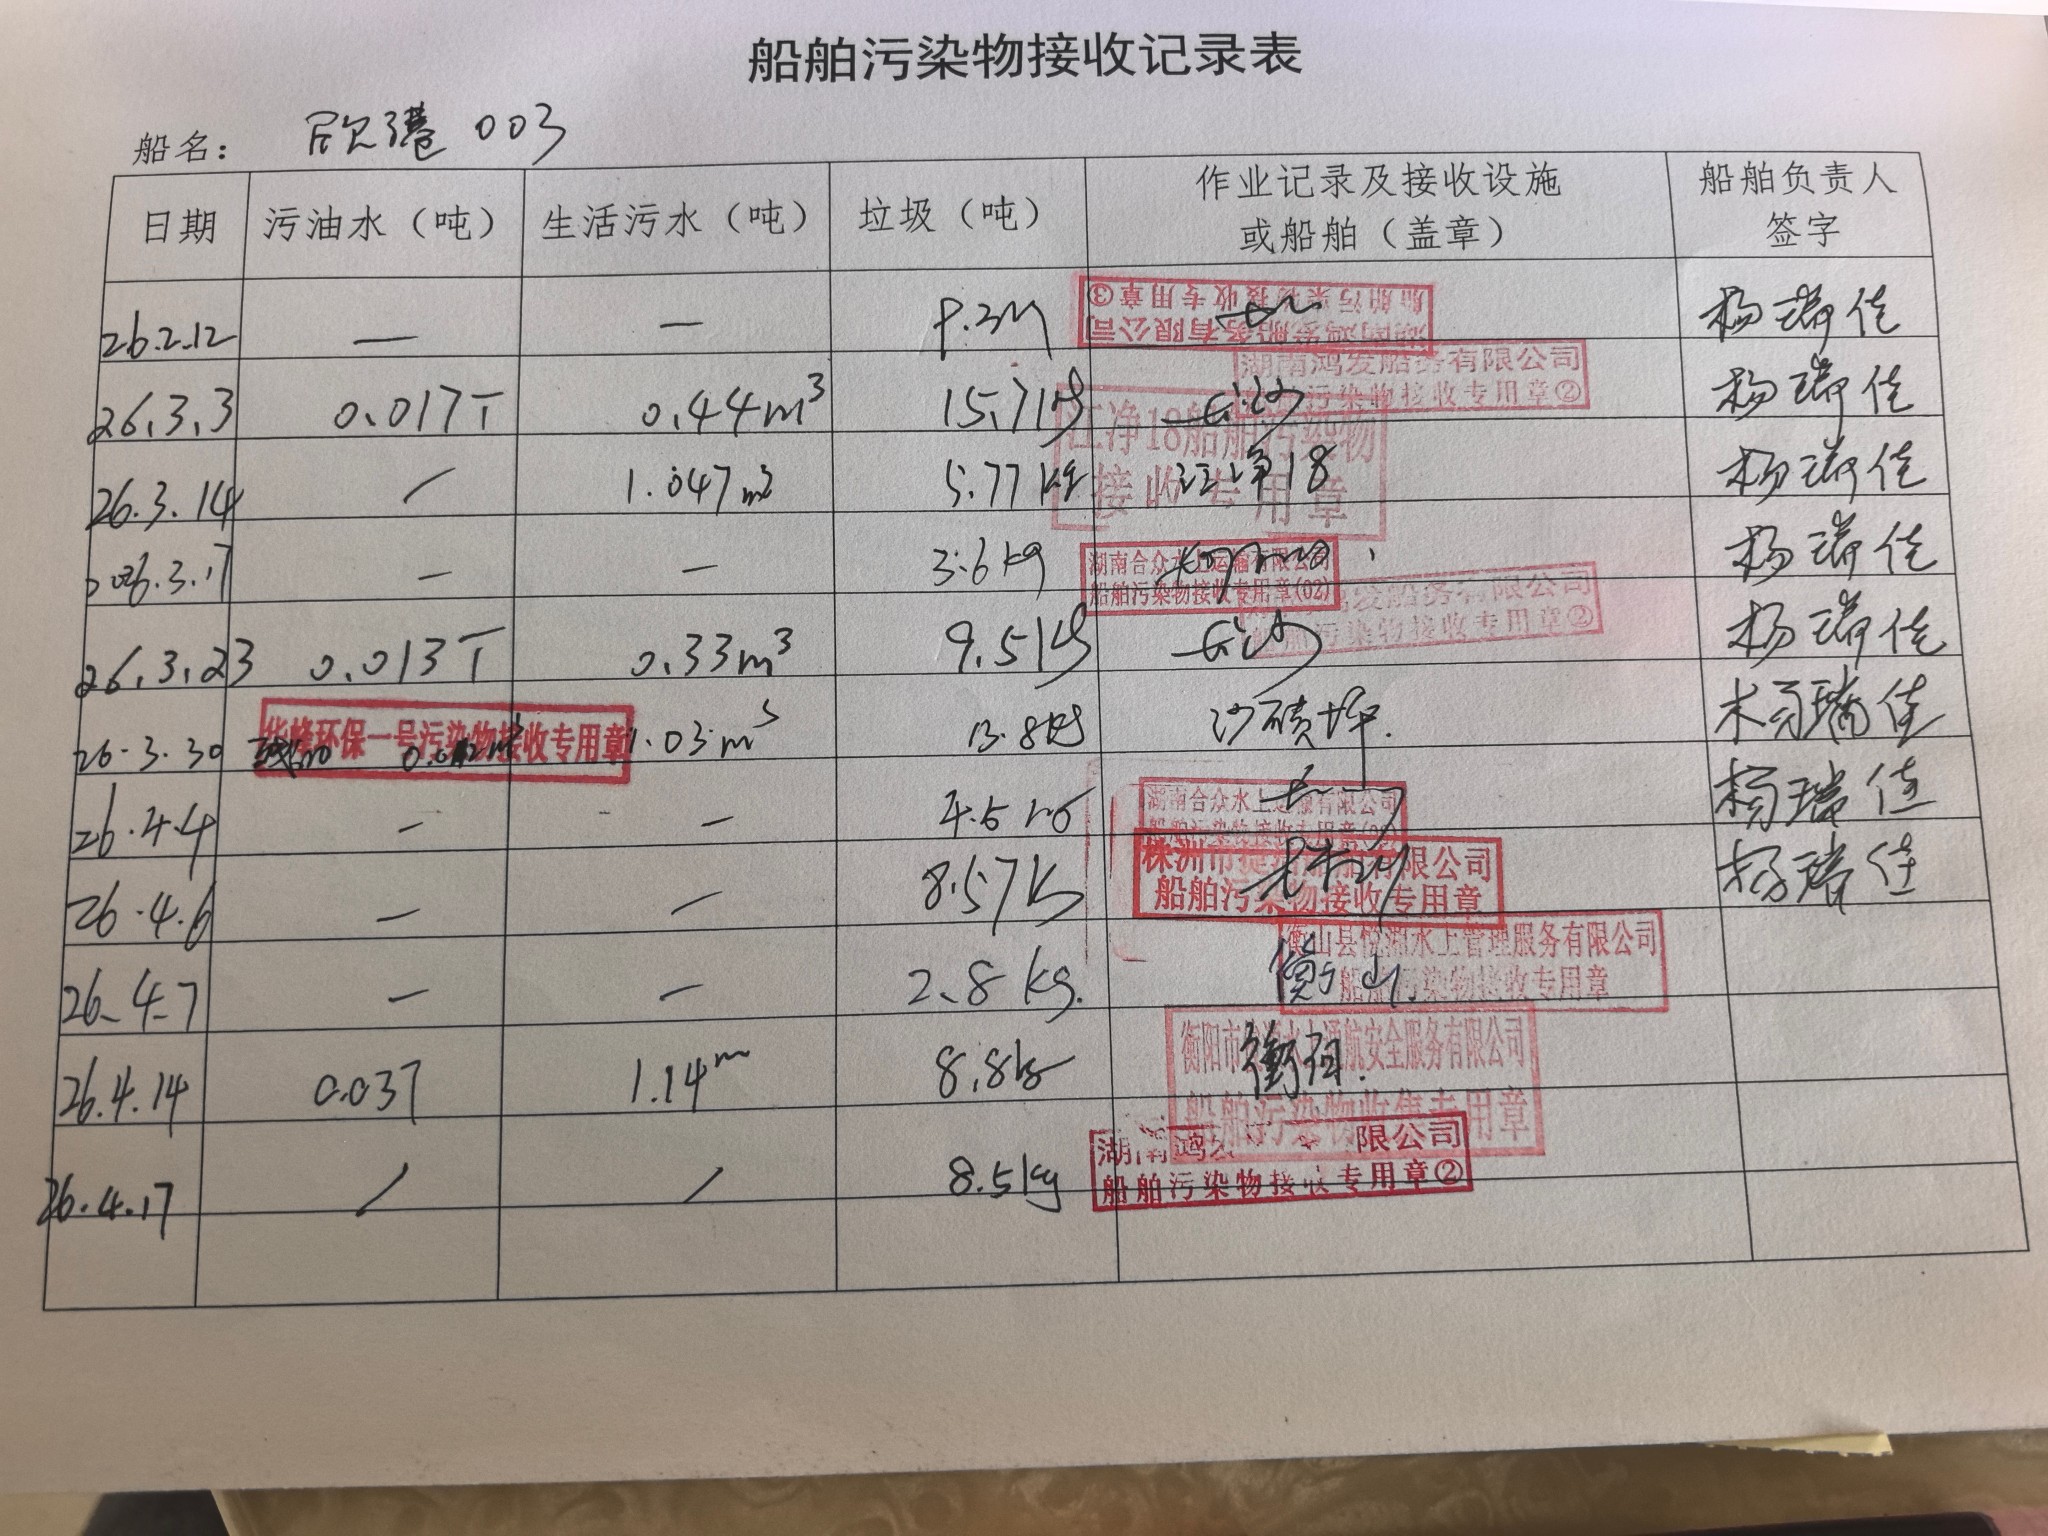 船舶污染物接收记录表
船名： 欣港 003
日期 污油水（吨） 生活污水（吨） 垃圾（吨） 作业记录及接收设施或船舶（盖章） 船舶负责人签字
26.2.12 — — 湖南鸿发船务有限公司 船舶污染物接收专用章③ 杨瑞佳
26.3.3 0.017T 0.44m³ 15.7kg 长沙 湖南鸿发船务有限公司 污染物接收专用章② 杨瑞佳
26.3.14 / 1.047m³ 5.77kg 江净18 江净18船舶污染物接收专用章 杨瑞佳
2026.3.17 — — 3.6kg 湖南合众水上运输有限公司 船舶污染物接收专用章(02) 杨瑞佳
26.3.23 0.013T 0.33m³ 9.5kg 长沙 鸿发船务有限公司 船舶污染物接收专用章② 杨瑞佳
26.3.30 环保一号污染物接收专用章 1.03m³ 13.8kg 沙碛坪. 杨瑞佳
26.4.4 — — 4.5kg 湖南合众水上运输有限公司 船舶污染物接收专用章 杨瑞佳
26.4.6 — — 8.57kg 株洲市 有限公司 船舶污染物接收专用章 杨瑞佳
26.4.7 — — 2.8kg. 衡山 衡山县 水上管理服务有限公司 船舶污染物接收专用章
26.4.14 0.037 1.14m 8.8kg 衡阳. 衡阳市 通航安全服务有限公司 船舶污染物收集专用章
26.4.17 / / 8.5kg 湖南鸿 限公司 船舶污染物接收专用章②